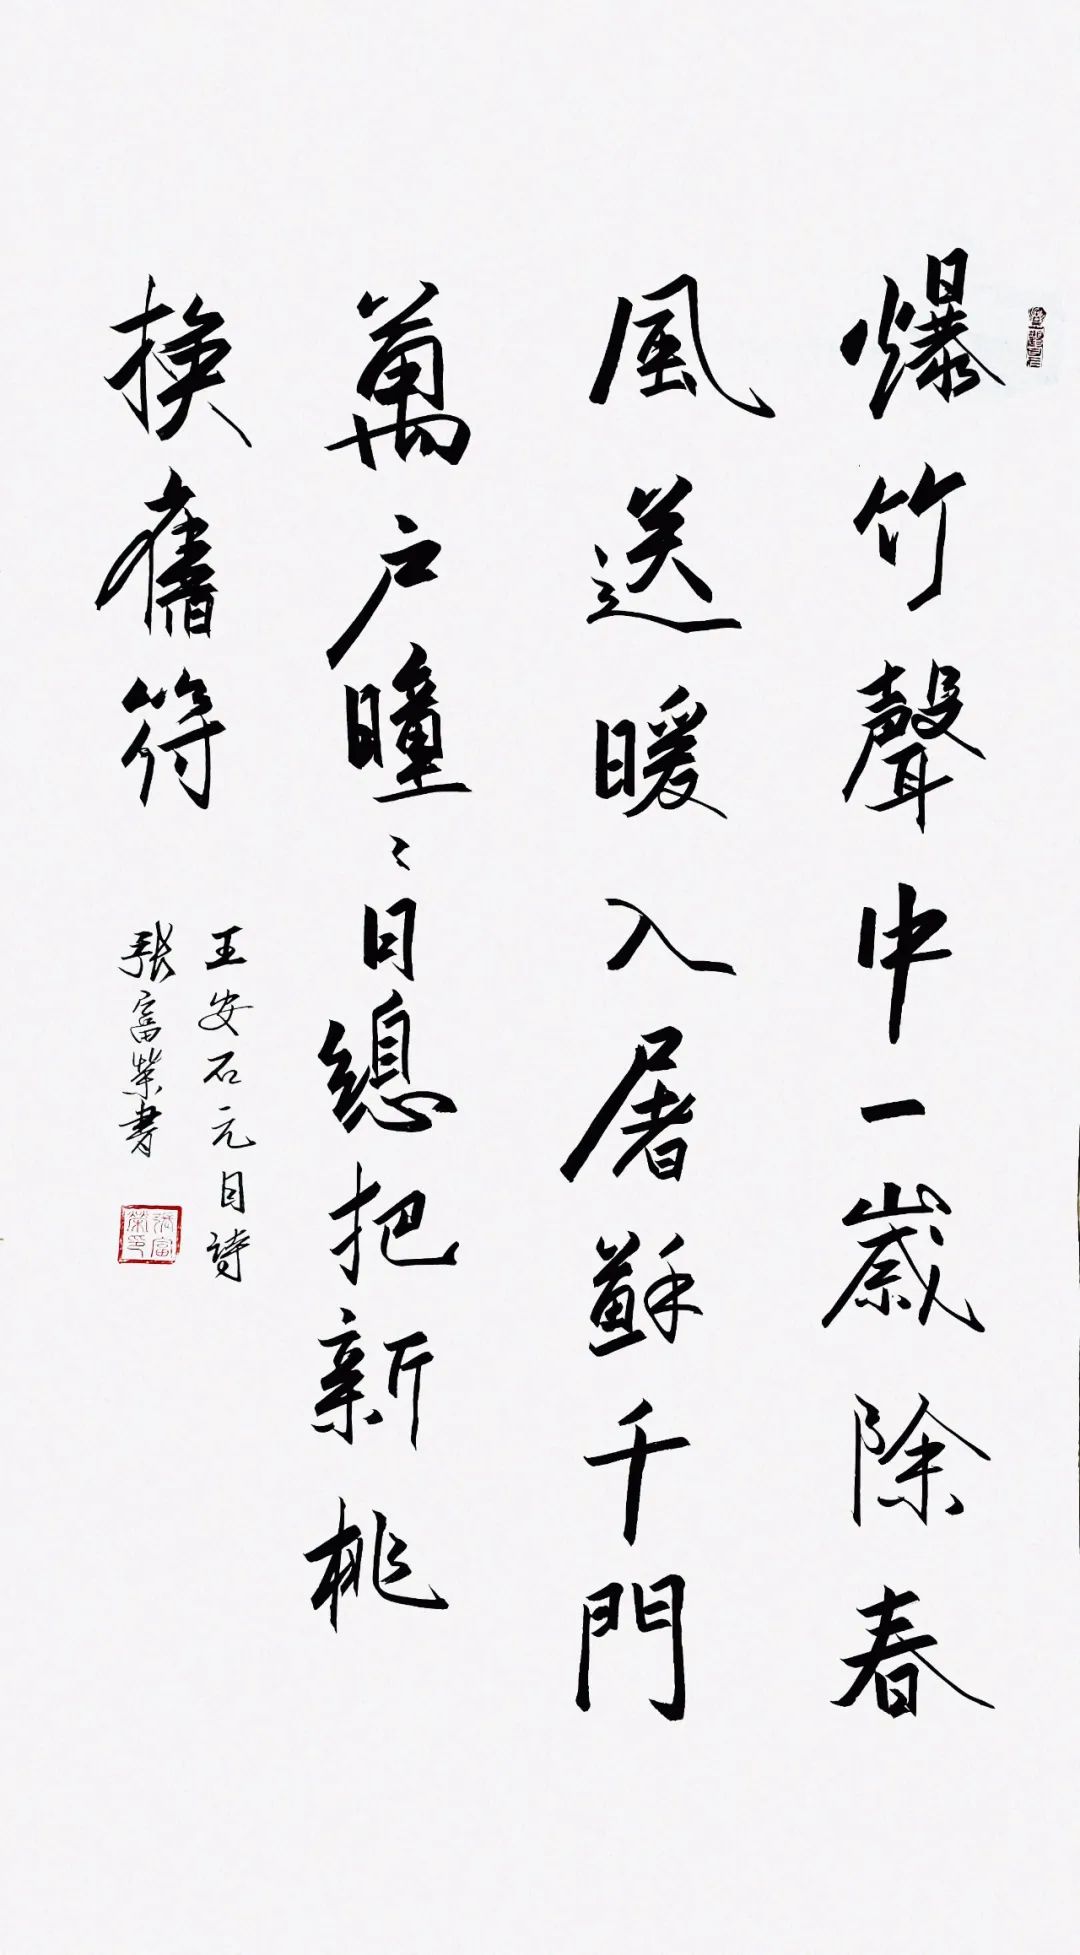 爆竹聲中一歲除春
風送暖入屠蘇千門
萬户曈〻日總把新桃
換舊符
王安石元日詩
張富榮書
張富榮印